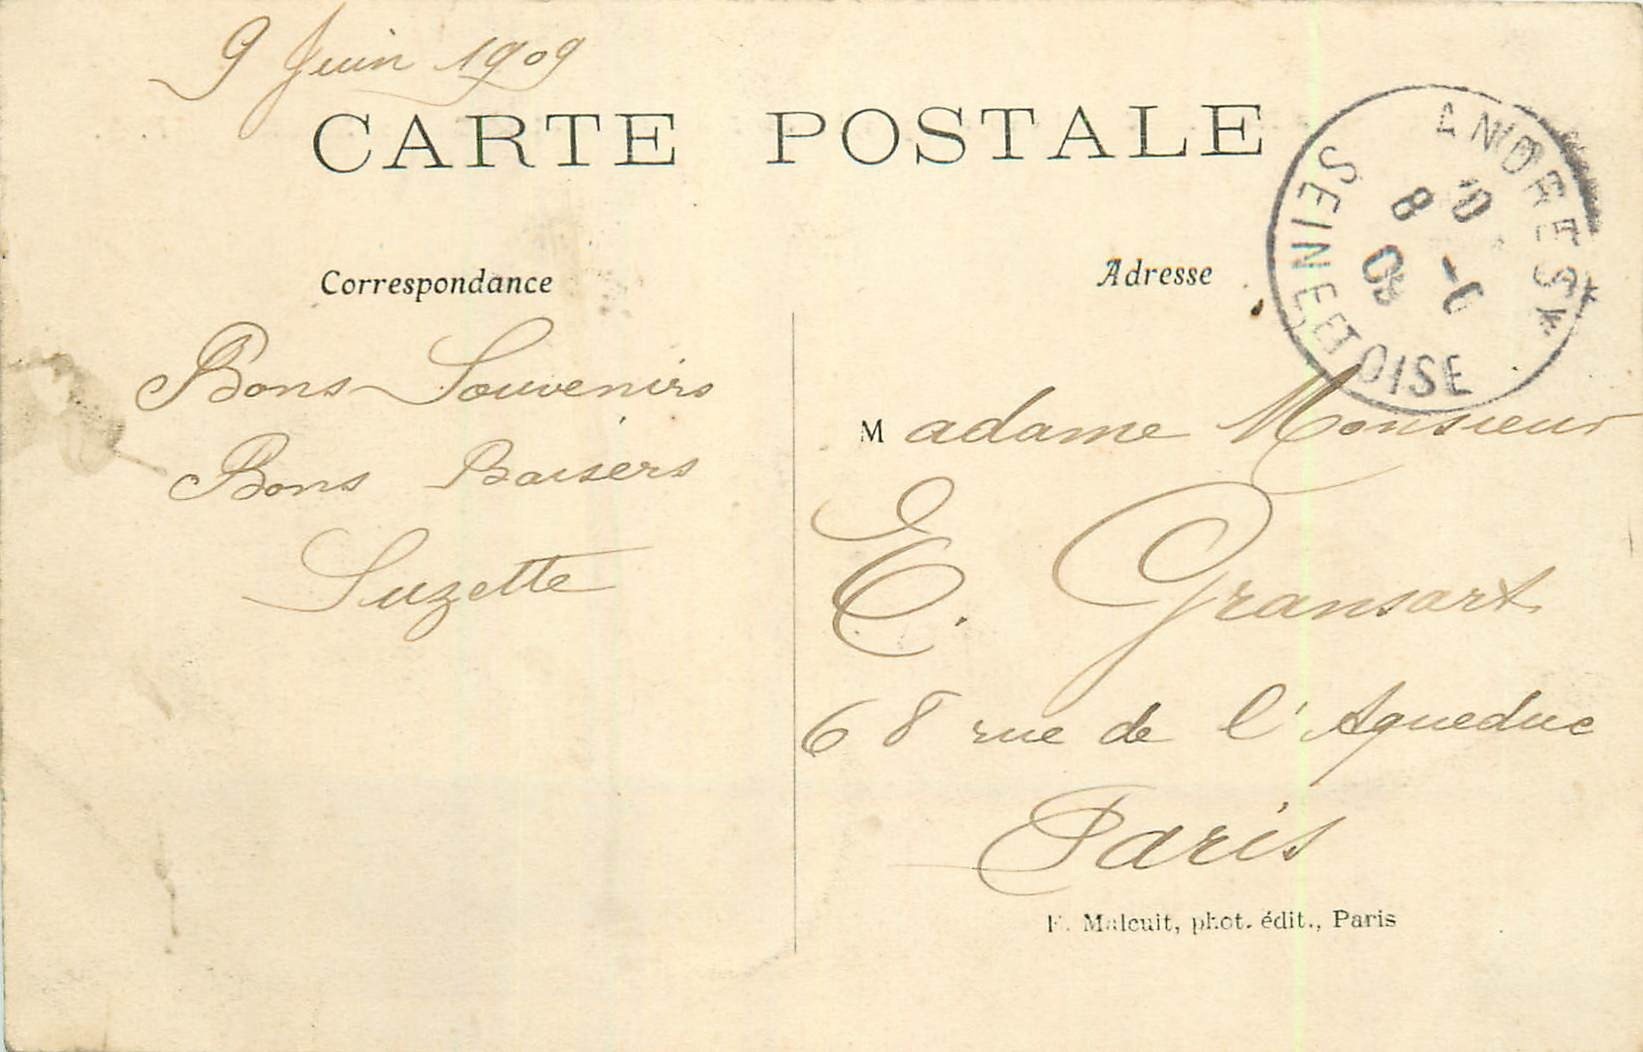 9 Juin 1909
CARTE POSTALE
ANDRESY
SEINE ET OISE
10
8 -6
09
Correspondance
Adresse
Bons Souvenirs
Bons Baisers
Suzette
Madame Monsieur
E. Gransart
68 rue de l'Aqueduc
Paris
F. Malcuit, phot. édit., Paris